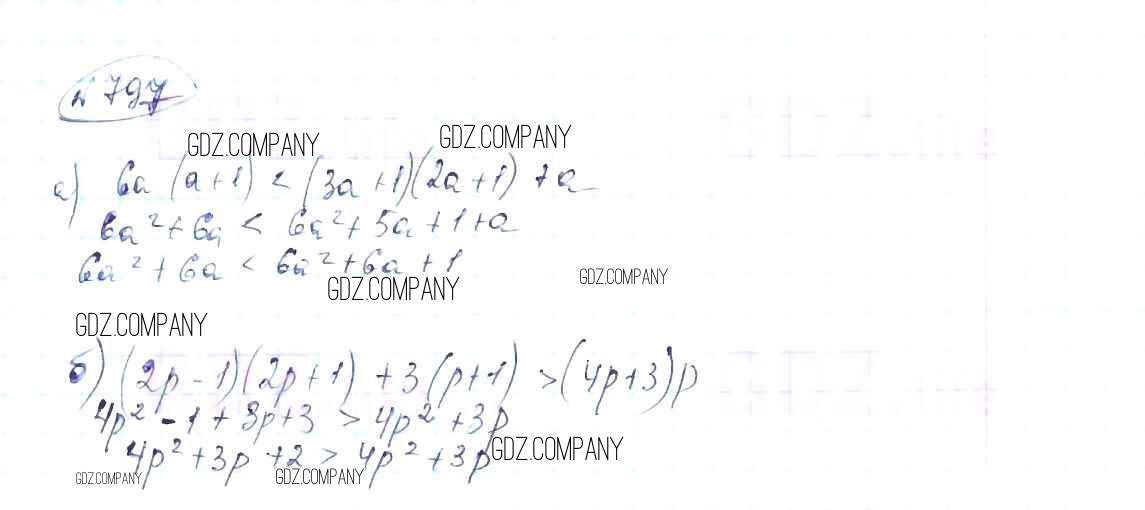 № 797
GDZ.COMPANY GDZ.COMPANY
а) 6a (a+1) < (3a+1)(2a+1) + a
6a² + 6a < 6a² + 5a + 1 + a
6a² + 6a < 6a² + 6a + 1
GDZ.COMPANY GDZ.COMPANY
GDZ.COMPANY
б) (2p-1)(2p+1) + 3(p+1) > (4p+3)p
4p² - 1 + 3p + 3 > 4p² + 3p
4p² + 3p + 2 > 4p² + 3p
GDZ.COMPANY
GDZ.COMPANY GDZ.COMPANY